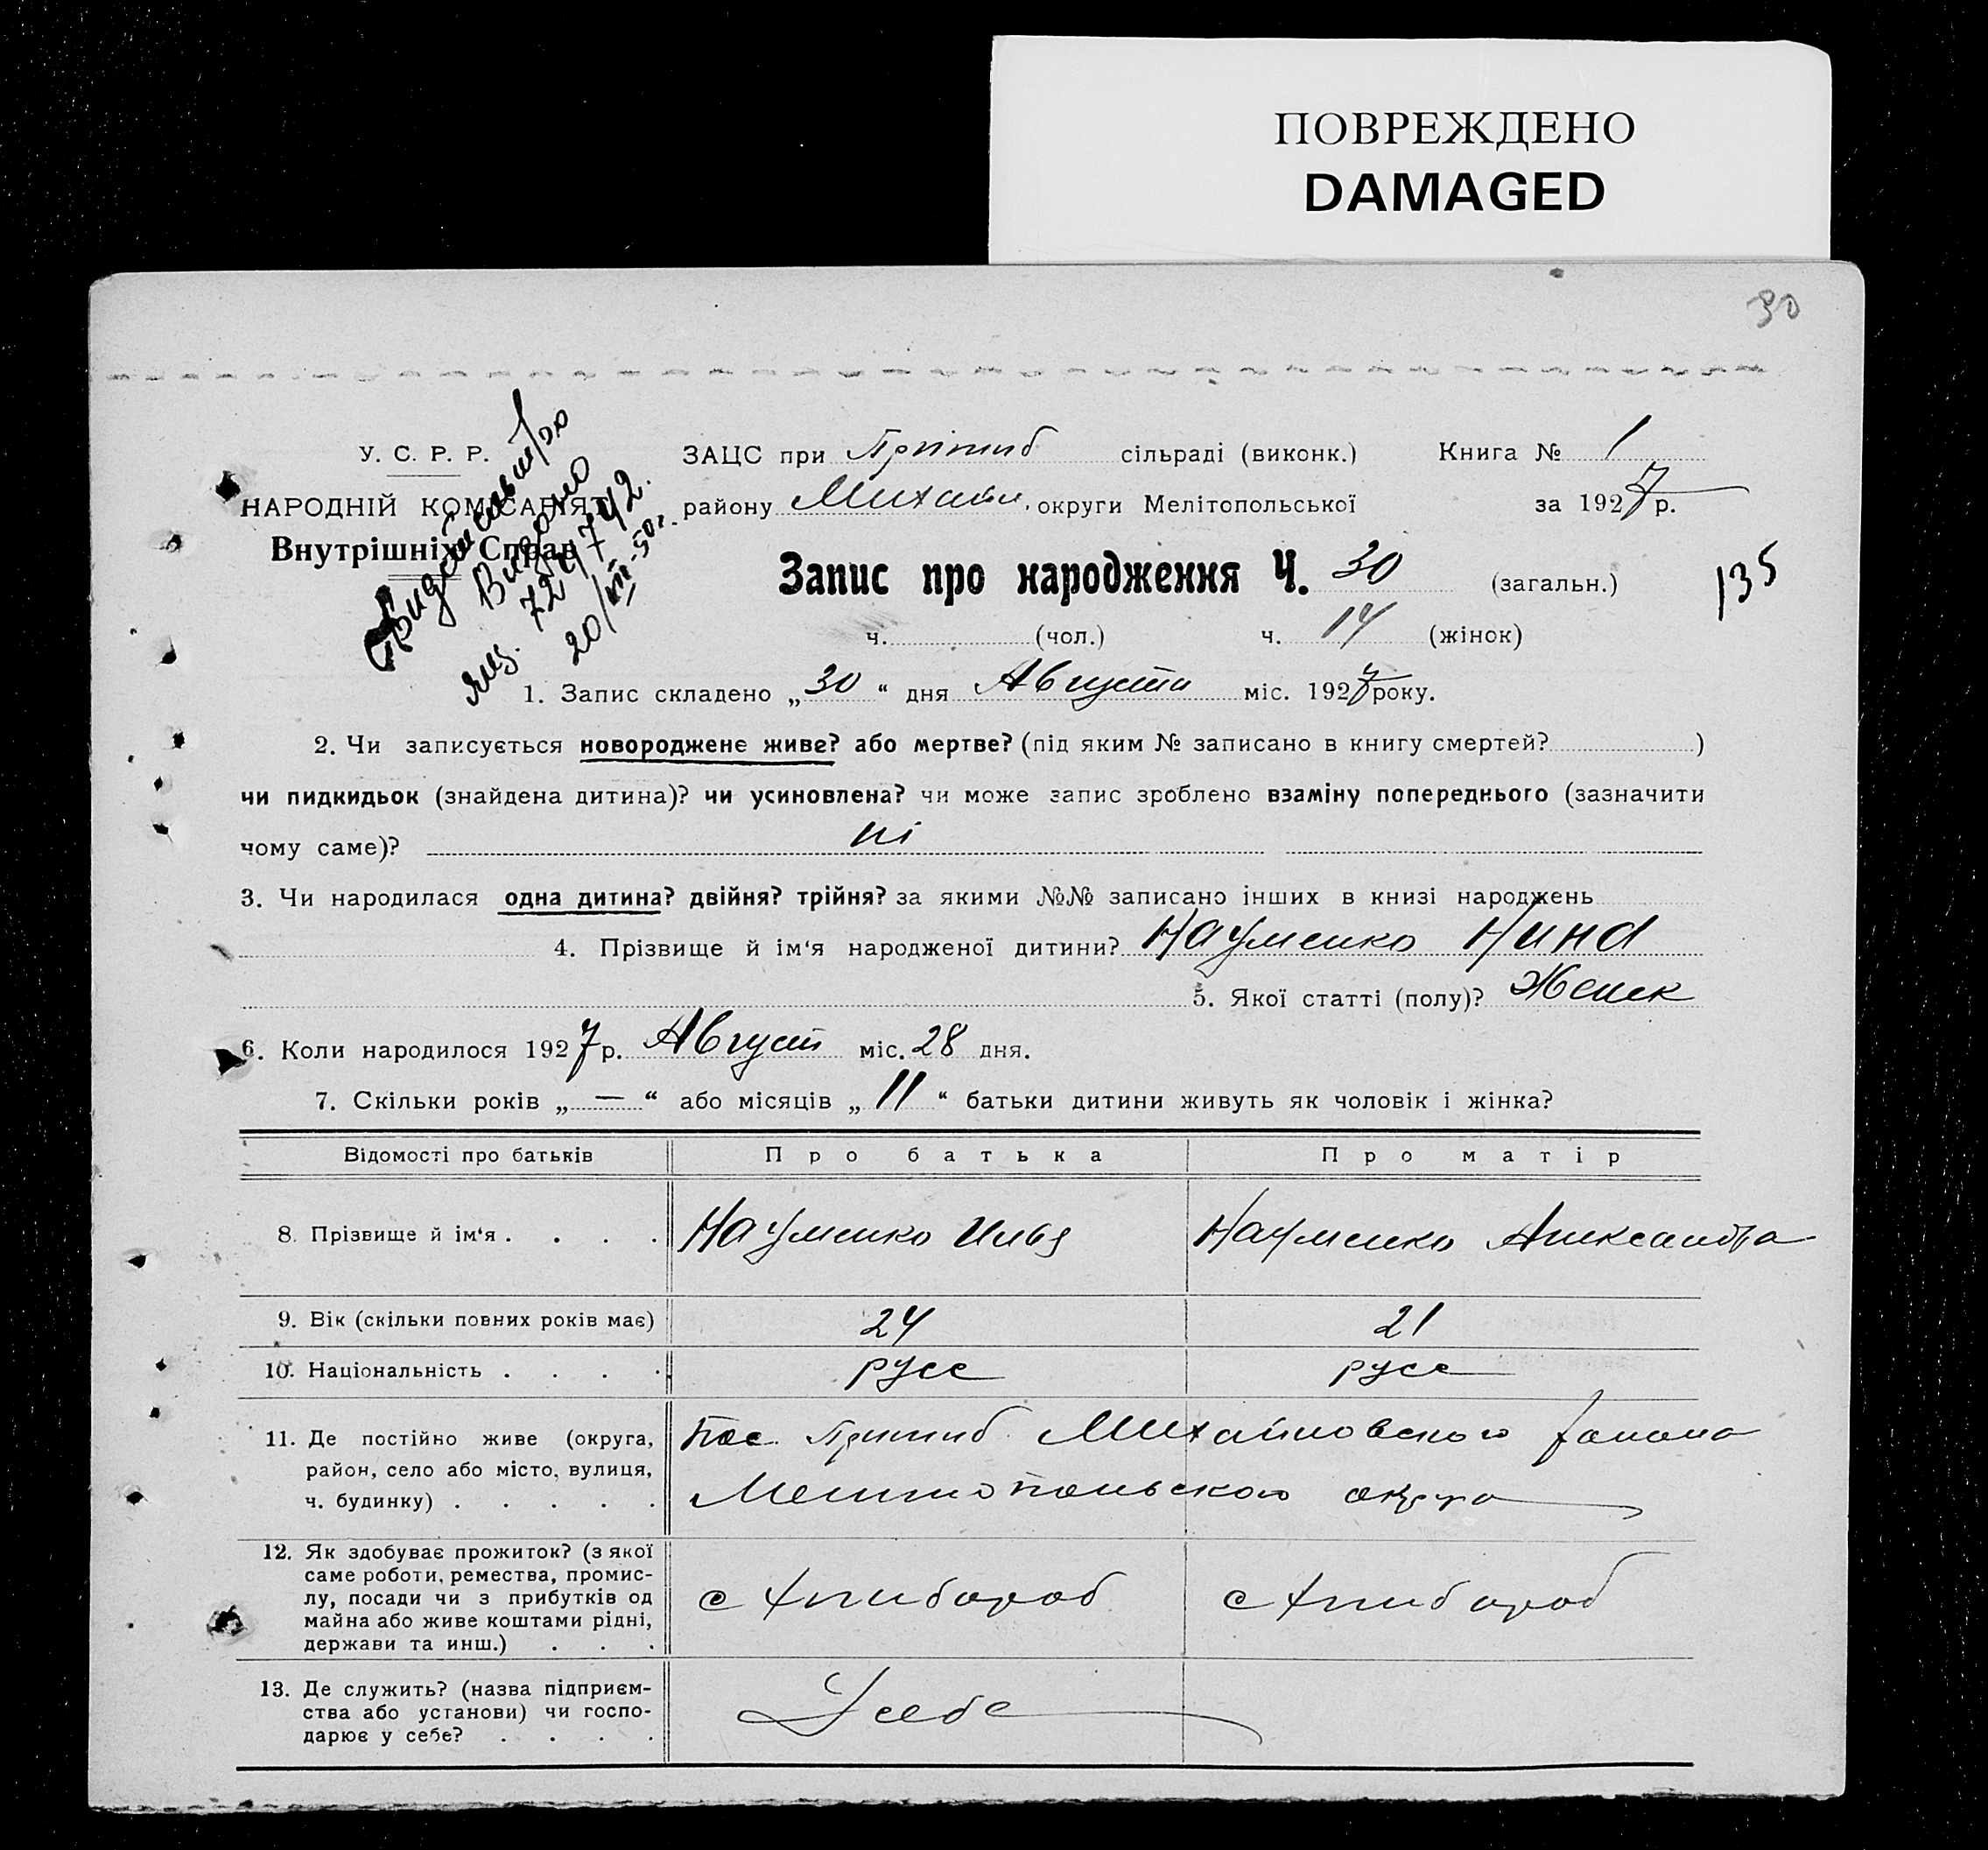 ПОВРЕЖДЕНО
DAMAGED
30
У. С. Р. Р.
НАРОДНІЙ КОМІСАРІЯТ
Внутрішніх Справ
Видано
72 47742.
20/III-50г.
ЗАЦС при Пришиб сільраді (виконк.) Книга № 1
району Михайл. округи Мелітопольської за 1927 р.
Запис про народження Ч. 30 (загальн.)
135
ч. (чол.) ч. 14 (жінок)
1. Запис складено „30“ дня Августа міс. 1927 року.
2. Чи записується новороджене живе? або мертве? (під яким № записано в книгу смертей? )
чи пидкидьок (знайдена дитина)? чи усиновлена? чи може запис зроблено взаміну попереднього (зазначити
чому саме)? ні
3. Чи народилася одна дитина? двійня? трійня? за якими №№ записано інших в книзі народжень
4. Прізвище й ім‘я народженої дитини? Науменко Нина
5. Якої статті (полу)? Женск
6. Коли народилося 1927 р. Август міс. 28 дня.
7. Скільки років „—“ або місяців „11“ батьки дитини живуть як чоловік і жінка?
Відомості про батьків Про батька Про матір
8. Прізвище й ім‘я . . . . Науменко Илья Науменко Александра
9. Вік (скільки повних років має) 24 21
10. Національність . . . . русс русс
11. Де постійно живе (округа,
район, село або місто, вулиця,
ч. будинку) . . . . .
пос. Пришиб Михайловского района
Мелитопольского округа
12. Як здобуває прожиток? (з якої
саме роботи, ремества, промис-
лу, посади чи з прибутків од
майна або живе коштами рідні,
держави та инш.) . . .
с хлибороб с хлибороб
13. Де служить? (назва підприєм-
ства або установи) чи госпо-
дарює у себе? . . . .
У себе